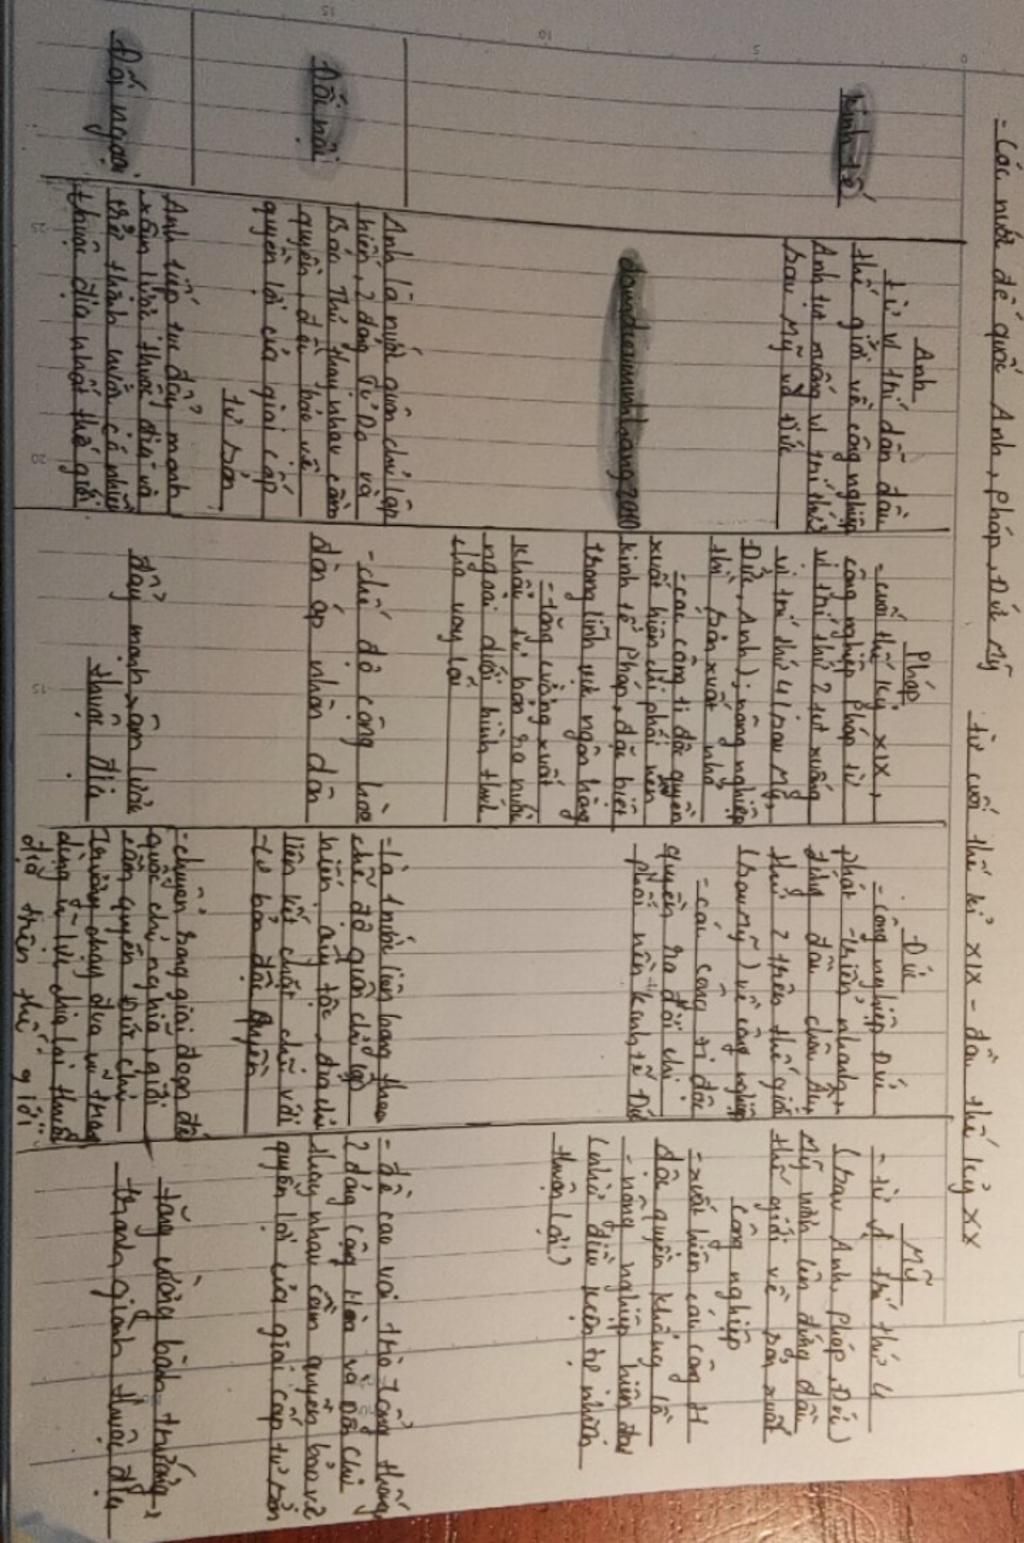 - Các nước đế quốc Anh, Pháp, Đức Mỹ từ cuối thế kỉ XIX - đầu thế kỷ XX
Anh
Pháp
Đức
Mỹ
Kinh tế
từ vị trí dẫn đầu
thế giới về công nghiệp
Anh tụt xuống vị trí thứ 3
sau Mỹ và Đức
- cuối thế kỷ XIX,
công nghiệp Pháp từ
vị trí thứ 2 tụt xuống
vị trí thứ 4 (sau Mỹ,
Đức, Anh); nông nghiệp
thì sản xuất nhỏ
- các công ti độc quyền
xuất hiện chi phối nền
kinh tế Pháp, đặc biệt
trong lĩnh vực ngân hàng
- tăng cường xuất
khẩu tư bản ra nước
ngoài dưới hình thức
cho vay lãi
- công nghiệp Đức
phát triển nhanh,
đứng đầu châu Âu,
thứ 2 trên thế giới
(sau Mỹ) về công nghiệp
- các công ti độc
quyền ra đời chi
phối nền kinh tế Đức
- từ vị trí thứ 4
(sau Anh, Pháp, Đức)
Mỹ vươn lên đứng đầu
thế giới về sản xuất
công nghiệp
- xuất hiện các công ti
độc quyền khổng lồ
- nông nghiệp hiện đại
(nhờ điều kiện tự nhiên
thuận lợi)
Đối nội
Anh là nước quân chủ lập
hiến, 2 đảng Tự Do và
Bảo Thủ thay nhau cầm
quyền, đều bảo vệ
quyền lợi của giai cấp
tư sản
- chế độ cộng hòa
đàn áp nhân dân
- là 1 nước liên bang theo
chế độ quân chủ lập
hiến, quý tộc, địa chủ
liên kết chặt chẽ với
tư bản độc quyền
- đề cao vai trò tổng thống
2 đảng Cộng Hòa và Dân Chủ
thay nhau cầm quyền bảo vệ
quyền lợi của giai cấp tư sản
Đối ngoại
Anh tiếp tục đẩy mạnh
xâm lược thuộc địa và
trở thành nước có nhiều
thuộc địa nhất thế giới
đẩy mạnh xâm lược
thuộc địa
- chuyển sang giai đoạn đế
quốc chủ nghĩa, giới
cầm quyền Đức chủ
trương chạy đua vũ trang
dùng vũ lực chia lại thuộc
địa trên thế giới
tăng cường bành trướng,
tranh giành thuộc địa